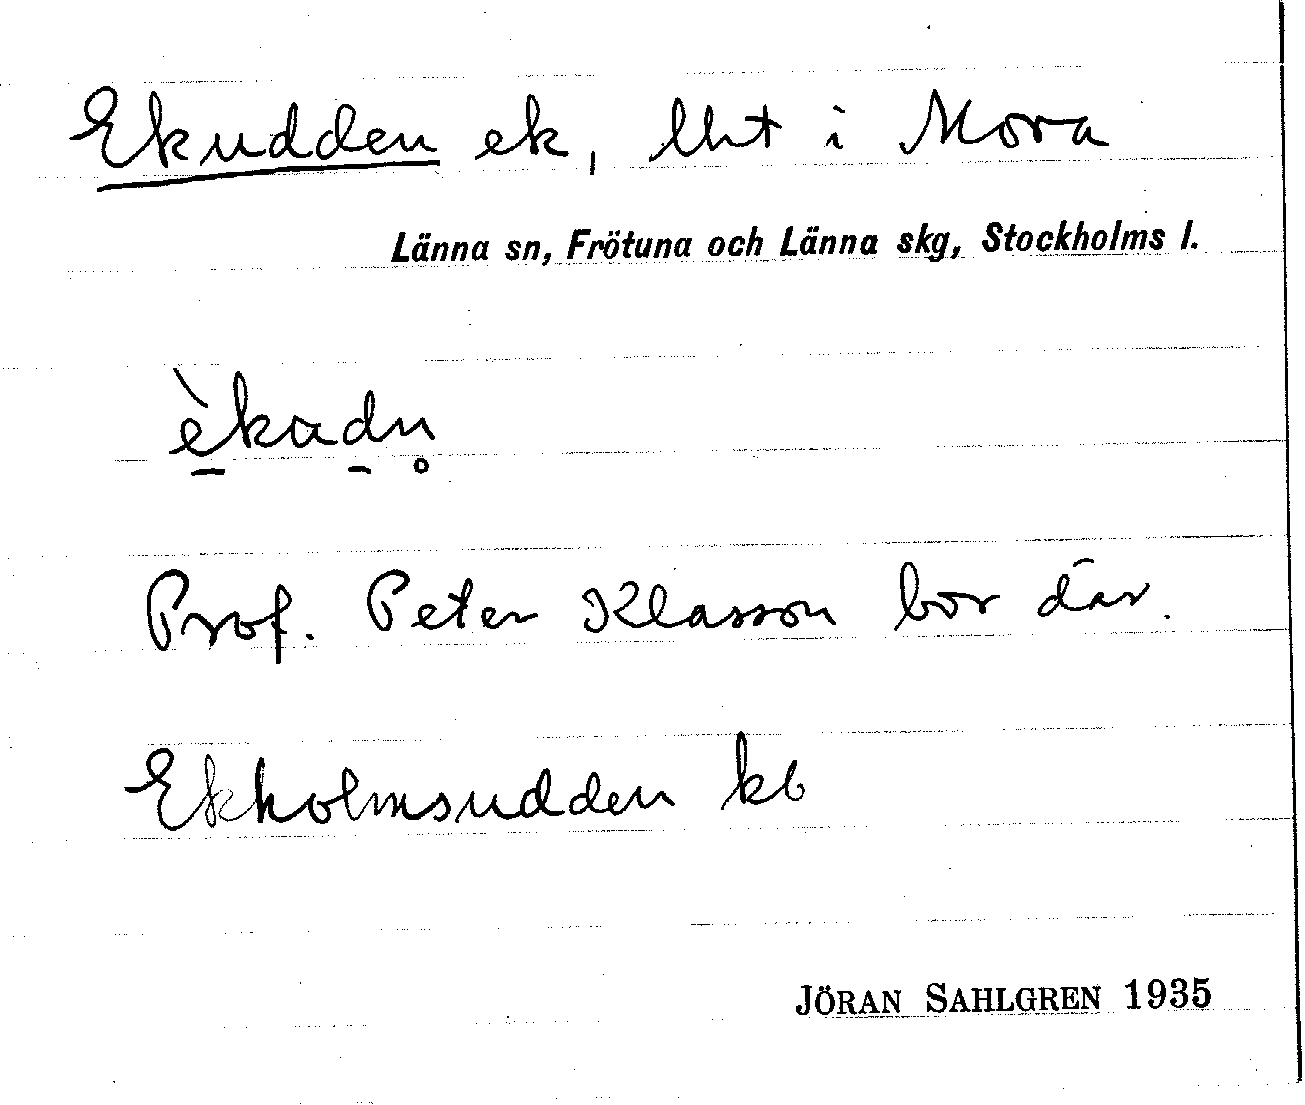 Ekudden ek, lht i Mora
Länna sn, Frötuna och Länna skg, Stockholms l.
è̱kaḏn̥
Prof. Peter Klasson bor där.
Ekholmsudden kb
JÖRAN SAHLGREN 1935